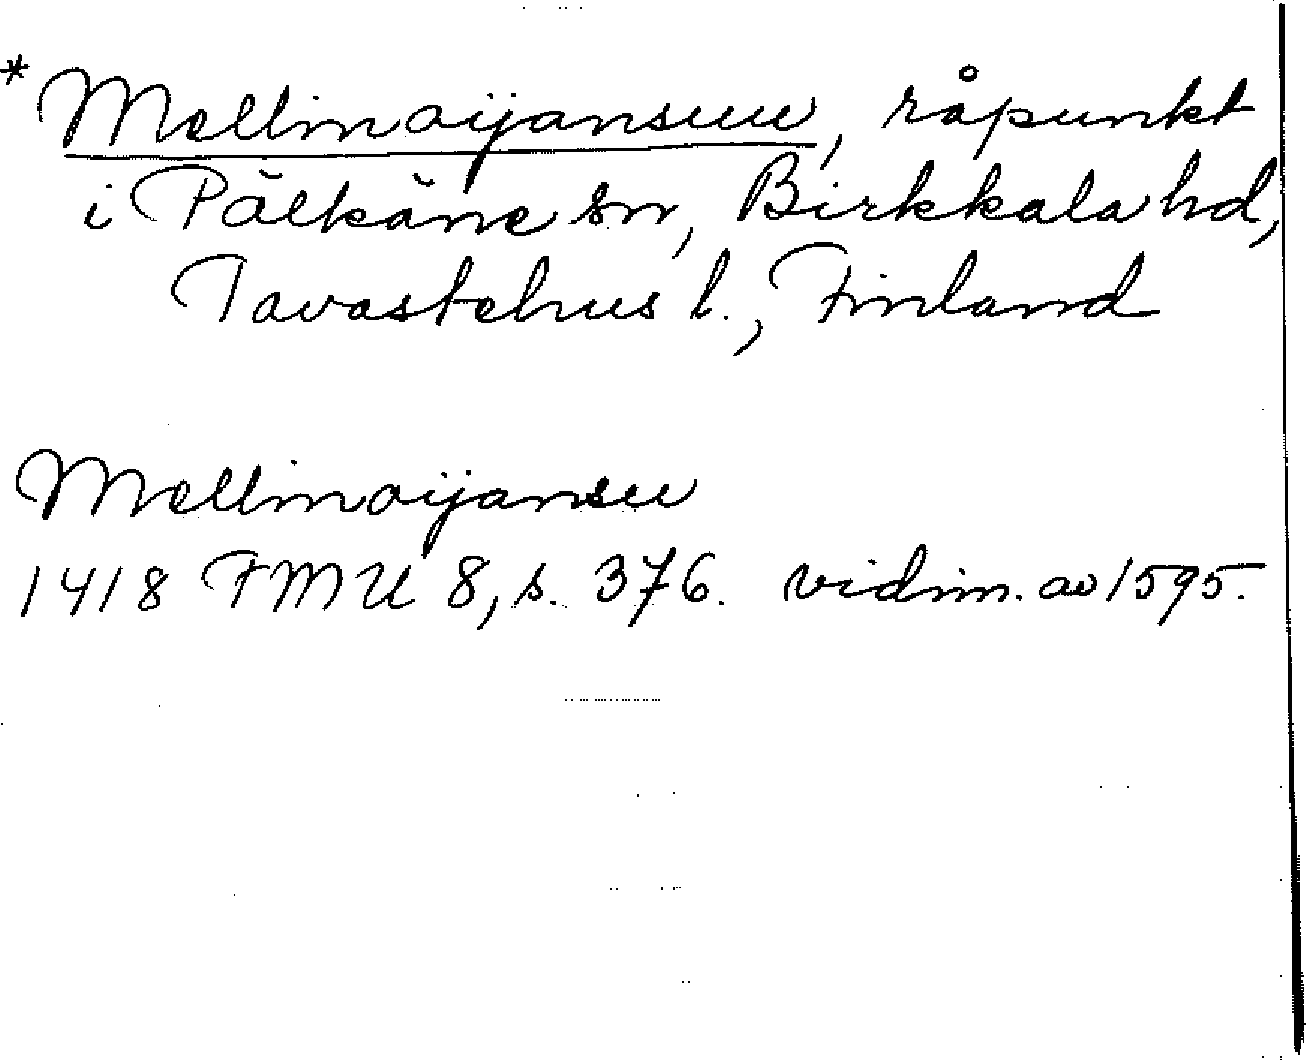 * Mellinoijansuu, råpunkt
i Pälkäne sn, Birkkala hd,
Tavastehus l., Finland
Mellinoijansu
1418 FMU 8, s. 376. vidim. av 1595.